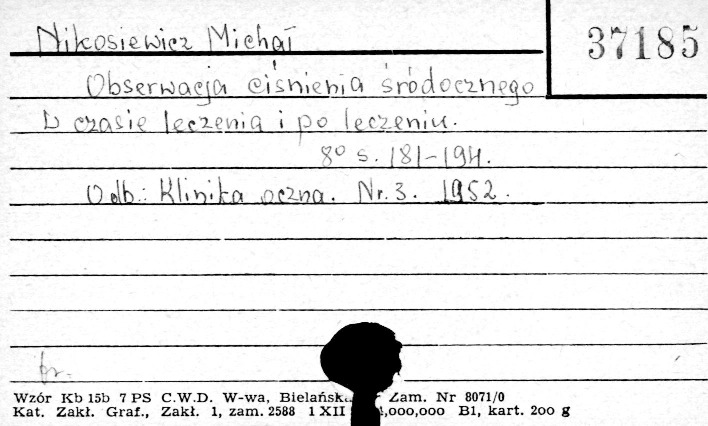 Nikosiewicz Michał
37185
Obserwacja ciśnienia śródocznego
w czasie leczenia i po leczeniu.
8° s. 181-194.
Odb.: Klinika oczna. Nr. 3. 1952.
Wzór Kb 15b 7 PS C.W.D. W-wa, Bielańska Zam. Nr 8071/0
Kat. Zakł. Graf., Zakł. 1, zam. 2588 1 XII 1,000,000 B1, kart. 200 g